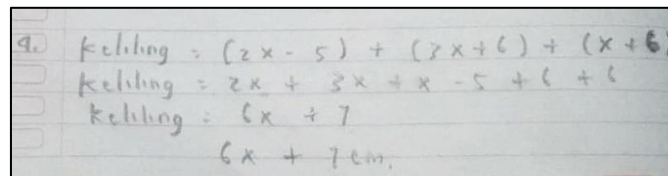 9. Keliling = (2x - 5) + (3x + 6) + (x + 6)
Keliling = 2x + 3x + x - 5 + 6 + 6
Keliling = 6x + 7
6x + 7 cm.